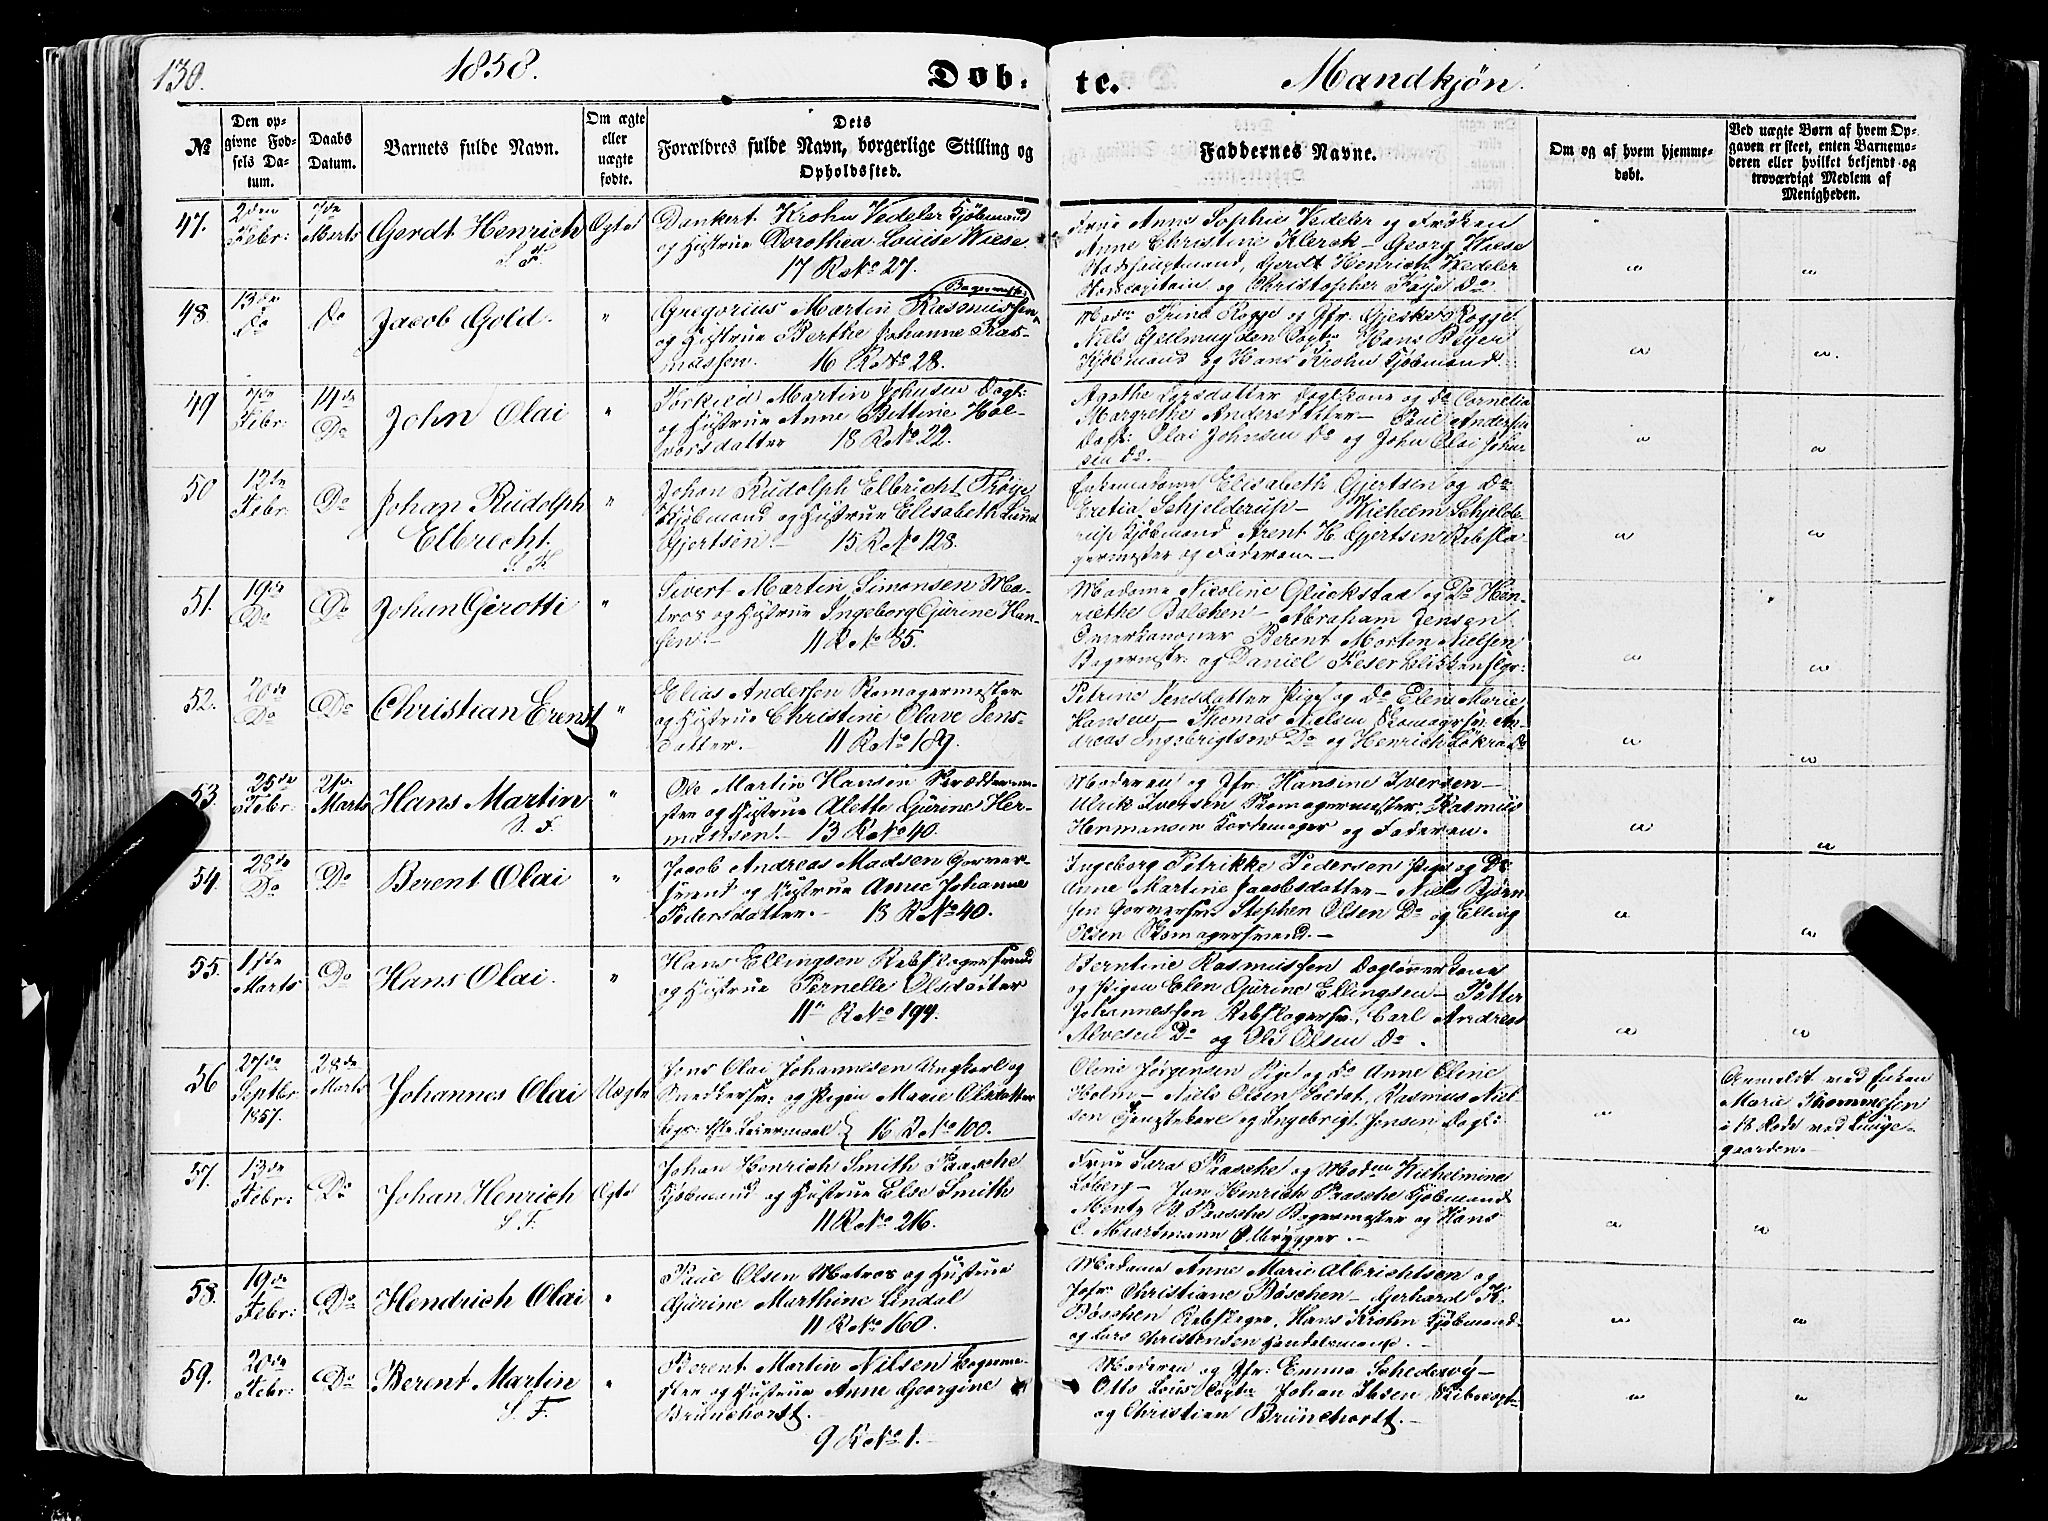 130.
1858.
Døb-
te.
Mandkjøn.
No
Den op-
givne Fød-
sels Da-
tum.
Daabs
Datum.
Barnets fulde Navn.
Om ægte
eller
uægte
fødte.
Dets
Forældres fulde Navn, borgerlige Stilling og
Opholdssted.
Faddernes Navne.
Om og af hvem hjemme-
døbt.
Ved uægte Børn af hvem Op-
gaven er skeet, enten Barnemo-
deren eller hvilket bekjendt og
troværdigt Medlem af
Menigheden.
47.
2den
Febr:
7de
Marts
Gerdt Henrich
S. F.
Ægte
Dankert Krohn Vedeler Kjøbmand
og Hustrue Dorothea Louise Wiese
17 R No 27.
Frue Anne Sophie Vedeler og Frøken
Anne Christine Klerck – Georg Wiese
Stadshauptmand, Gerdt Henrich Vedeler
og Christopher Do
48.
13de
Do
Do
Jacob Gold.
"
Bagermstr:
Gregorius Martin Rasmussen
og Hustrue Berthe Johanne Ras-
mussen. 16 R No 28.
Madm Trine Rogge og Jfr. Rogge
Niels Hans Beyer
Kjøbmand og Hans Krohn Kjøbmand.
49
7de
Febr:
14de
Do
John Olai
"
Torkild Martin Johnsen Dagl:
og Hustrue Anne Bettine Hal-
vorsdatter 18 R No 22.
Agathe Larsdatter Daglkone og Do Cornelia
Margrethe Andersdatter – Paul Andersen
Dagl: Olai Johnsen Do og John Olai John-
sen Do.
50
12te
Febr:
Do
Johan Rudolph
Elbrecht
S. F.
"
Johan Rudolph Elbricht
Kjøbmand og Hustrue Elisabeth Lund
Gjertsen – 15 R No 128.
Elisabeth Gjertsen og Do
Schjelderup – Wilhelm Schjelde-
rup Kjøbmand Arent H. Gjertsen Rebsla-
germester og Faderen –
51.
19de
Do
Do
Johan Girotti
"
Sivert Martin Simonsen Ma-
tros og Hustrue Ingeborg Gurine Han-
sen. – 11 R No 85.
Madame Nicoline Gluckstad og Do Hen-
riethe Balchen – Abraham Jensen
Overkanoner Berent Morten Nielsen
Bagermstr: og Daniel
52.
20de
Do
Do
Christian Erenst
"
Elias Andersen Skomagermester
og Hustrue Christine Olave Jens-
datter. – 11 R No 189.
Petrine Jensdatter Pige og Do Elen Marie
Hansen – Thomas Nielsen Skomagersv: An-
dreas Ingebrigtsen Do og Henrich Do
53.
25de
Febr:
21de
Marts
Hans Martin
S. F.
"
Ole Martin Hansen Skrædderme-
ster og Hustrue Alette Gurine Her-
mansen. – 13 R No 40.
Moderen og Jfr. Hansine Iversen –
Ulrik Iversen Skomagermester, Rasmus
Hermansen og Faderen.
54.
28de
Do
Do
Berent Olai
"
Jacob Andreas Madsen Garver-
svend og Hustrue Anne Johanne
Pedersdatter. – 13 R No 40.
Ingeborg Petrikke Pedersen Pige og Do
Anne Martine Jacobsdatter – Niels Bjørn-
sen Garversv: Stephen Olsen Do og Elling
Olsen Skomagersvend. –
55.
11te
Marts
Do
Hans Olai.
"
Hans Ellingsen Rebslagersvend
og Hustrue Pernelle Olsdatter
11 R No 194.
Berntine Rasmussen Daglønnerkone
og Pigen Elen Gurine Ellingsen – Petter
Johannessen Rebslagersv:, Carl Andreas
Alvesen Do og Ole Olsen Do.
56
27de
Septbr
1857.
28de
Marts
Johannes Olai
Uægte
Jens Olai Johannesen Ungkarl og
Snedkersv: og Pigen Marie Olsdatter
begs: 1ste Leiermaal } 16 R No 100.
Oline Jørgensen Pige og Do Anne Oline
Holm – Niels Olsen Soldat, Rasmus Niel-
sen Tjenestekarl og Ingebrigt Jensen Dagl:
Anmeldt ved Enken
Marie Thommesen
i 18 Rode ved
gaarden. –
57.
13de
Febr:
Do
Johan Henrich
S. F.
Ægte
Johan Henrich Smith Paasche
Kjøbmand og Hustrue Else Smith
11 R No 216.
Frue Sara Paasche og Madm Wilhelmine
Loberg – Jan Henrich Paasche Kjøbmand
Mentz Paasche Bagermester og Hans
C. Martmann Ølbrygger. –
58.
19de
Febr:
Do
Hendrich Olai
"
Paul Olsen Matros og Hustrue
Gurine Marthine Lindal
11 R No 160.
Madame Anne Marie Albrichtsen og
Jfr. Christiane Bøschen – Gerhard
Bøschen Rebslager, Hans Krohn Kjøbmand
og Lars Christensen Handelsmand.
59.
20de
Febr:
Do
Berent Martin
S. F.
"
Berent Martin Nilsen Bagerme-
ster og Hustrue Anne Georgine
Brunchorst. –
9 R No 1. –
Moderen og Jfr: Emma –
Otto Johan Ibsen
og Christian Brunchorst. –